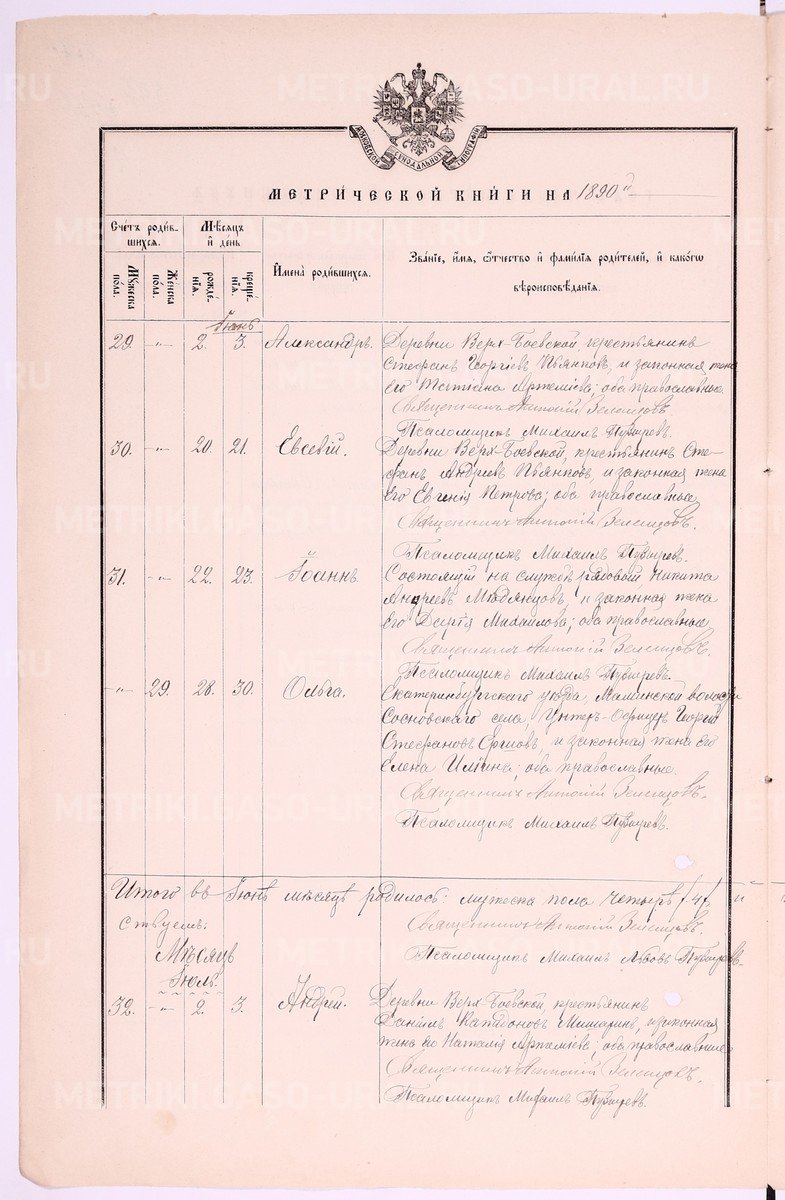 МОСКОВСКОЙ СѴНОДАЛЬНОЙ ТИПОГРАФІИ
МЕТРИ́ЧЕСКОЙ КНИ́ГИ НА 1890 й
Сче́тъ роди́в-
шихся.
Мѣ́сяцъ
и҆ де́нь
Му́жеска
по́ла.
Же́нска
по́ла.
рожде́-
нїѧ.
креще́-
нїѧ.
И҆мена̀ роди́вшихся.
Зва́нїе, и҆́мя, ѻ҆́тчество и҆ фами́лїя роди́телей, и҆ како́гѡ
вѣроисповѣ́данїя.
Іюнь
29. -"- 2. 3. Александръ. Деревни Верх-Боевской, крестьянинъ
Стефанъ Георгіевъ Пьянковъ, и законная жена
его Татіана Артеміева; оба православные.
Священникъ Антоній
Псаломщикъ Михаилъ Пузыревъ.
30. -"- 20. 21. Евсевій. Деревни Верх-Боевской, крестьянинъ Сте-
фанъ Андреевъ Пьянковъ, и законная жена
его Евгенія Петрова; оба православные.
Священникъ Антоній
Псаломщикъ Михаилъ Пузыревъ.
31. -"- 22. 23. Іоаннъ. Состоящій на службѣ рядовой Никита
Андреевъ Медянцовъ, и законная жена
его Дарія Михаилова; оба православные.
Священникъ Антоній
Псаломщикъ Михаилъ Пузыревъ.
-"- 29. 28. 30. Ольга. Екатеринбургскаго уѣзда Маминской волости
Сосновскаго села, Унтеръ-Офицеръ Георгій
Стефановъ и законная жена его
Елена Иліина; оба православные.
Священникъ Антоній
Псаломщикъ Михаилъ Пузыревъ.
Итого въ Іюнѣ мѣсяцѣ родилось: мужеска пола четыре /4/, и
Священникъ Антоній
Псаломщикъ Михаилъ Пузыревъ.
Мѣсяцъ
Іюль.
32. -"- 2. 3. Андрей. Деревни Верх-Боевской, крестьянинъ
Даніилъ и законная
жена его Наталія Артеміева; оба православные
Священникъ Антоній
Псаломщикъ Михаилъ Пузыревъ.
METRIKI.GASO-URAL.RU